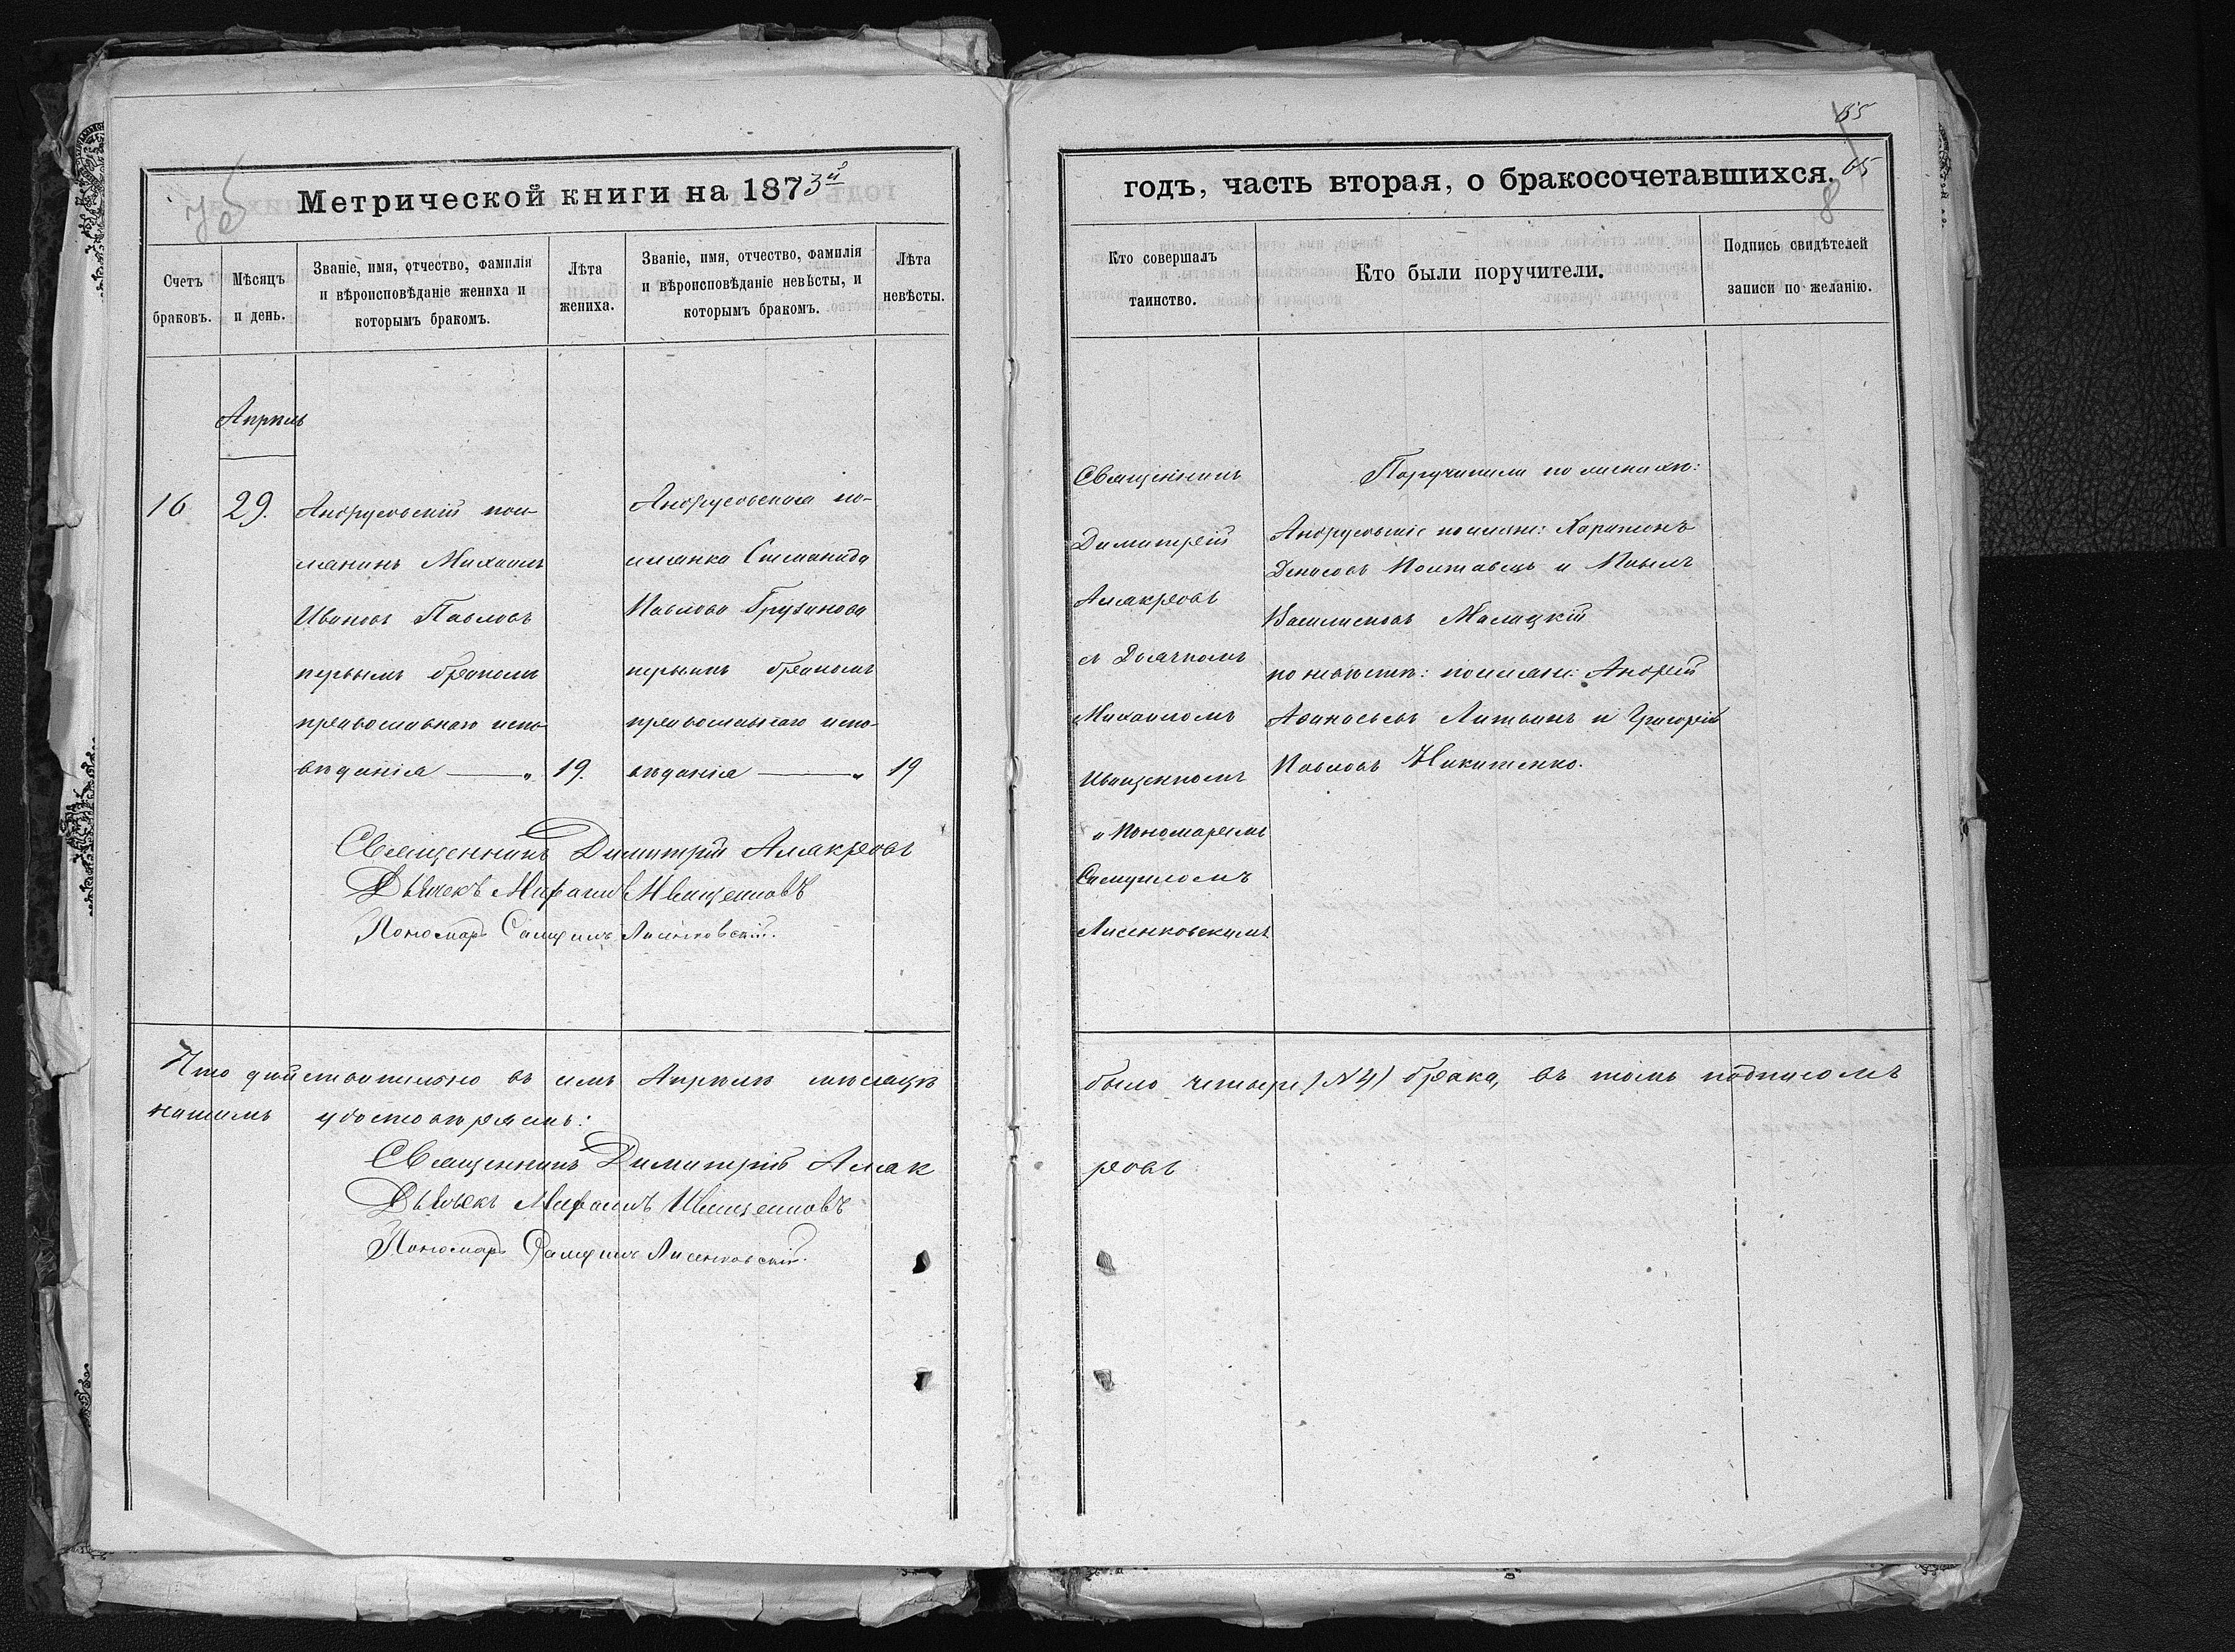 Метрической книги на 1873й
Счетъ браковъ.
Мѣсяцъ и день.
Званіе, имя, отчество, фамилія и вѣроисповѣданіе жениха и которымъ бракомъ.
Лѣта жениха.
Званіе, имя, отчество, фамилія и вѣроисповѣданіе невѣсты, и которымъ бракомъ.
Лѣта невѣсты.
Апрѣль
16
29.
Андрусовскій посе-
лянинъ Михаилъ
Ивановъ Павловъ
первымъ бракомъ
православнаго испо-
вѣданія — „
19.
Андрусовская по-
селянка Степанида
Павлова Грузинова
первымъ бракомъ
православнаго испо-
вѣданія — „
19
Священникъ Димитрій Алакреовъ
Дьячекъ Михаилъ Иващенковъ
Пономарь Самуилъ Лисенковскій.
Что дѣйствительно въ семъ Апрѣлѣ мѣсяцѣ
нашимъ удостовѣряемъ:
Священникъ Димитрій Алак
Дьячекъ Михаилъ Иващенковъ
Пономарь Самуилъ Лисенковскій.
65
65
8
годъ, часть вторая, о бракосочетавшихся.
Кто совершалъ таинство.
Кто были поручители.
Подпись свидѣтелей записи по желанію.
Священникъ
Димитрій
Алакреовъ
съ Дьячкомъ
Михаиломъ
Иващенкомъ
и Пономаремъ
Самуиломъ
Лисенковскимъ
Поручители по женихѣ:
Андрусовскіе поселяне: Харитонъ
Денисовъ Полтавецъ и Павелъ
Василиевъ Малицкій
по невѣстѣ: поселяне: Андрей
Афанасьевъ Литвинъ и Григорій
Павловъ Никитенко.
было четыре (№4) брака, въ томъ подписомъ
реовъ